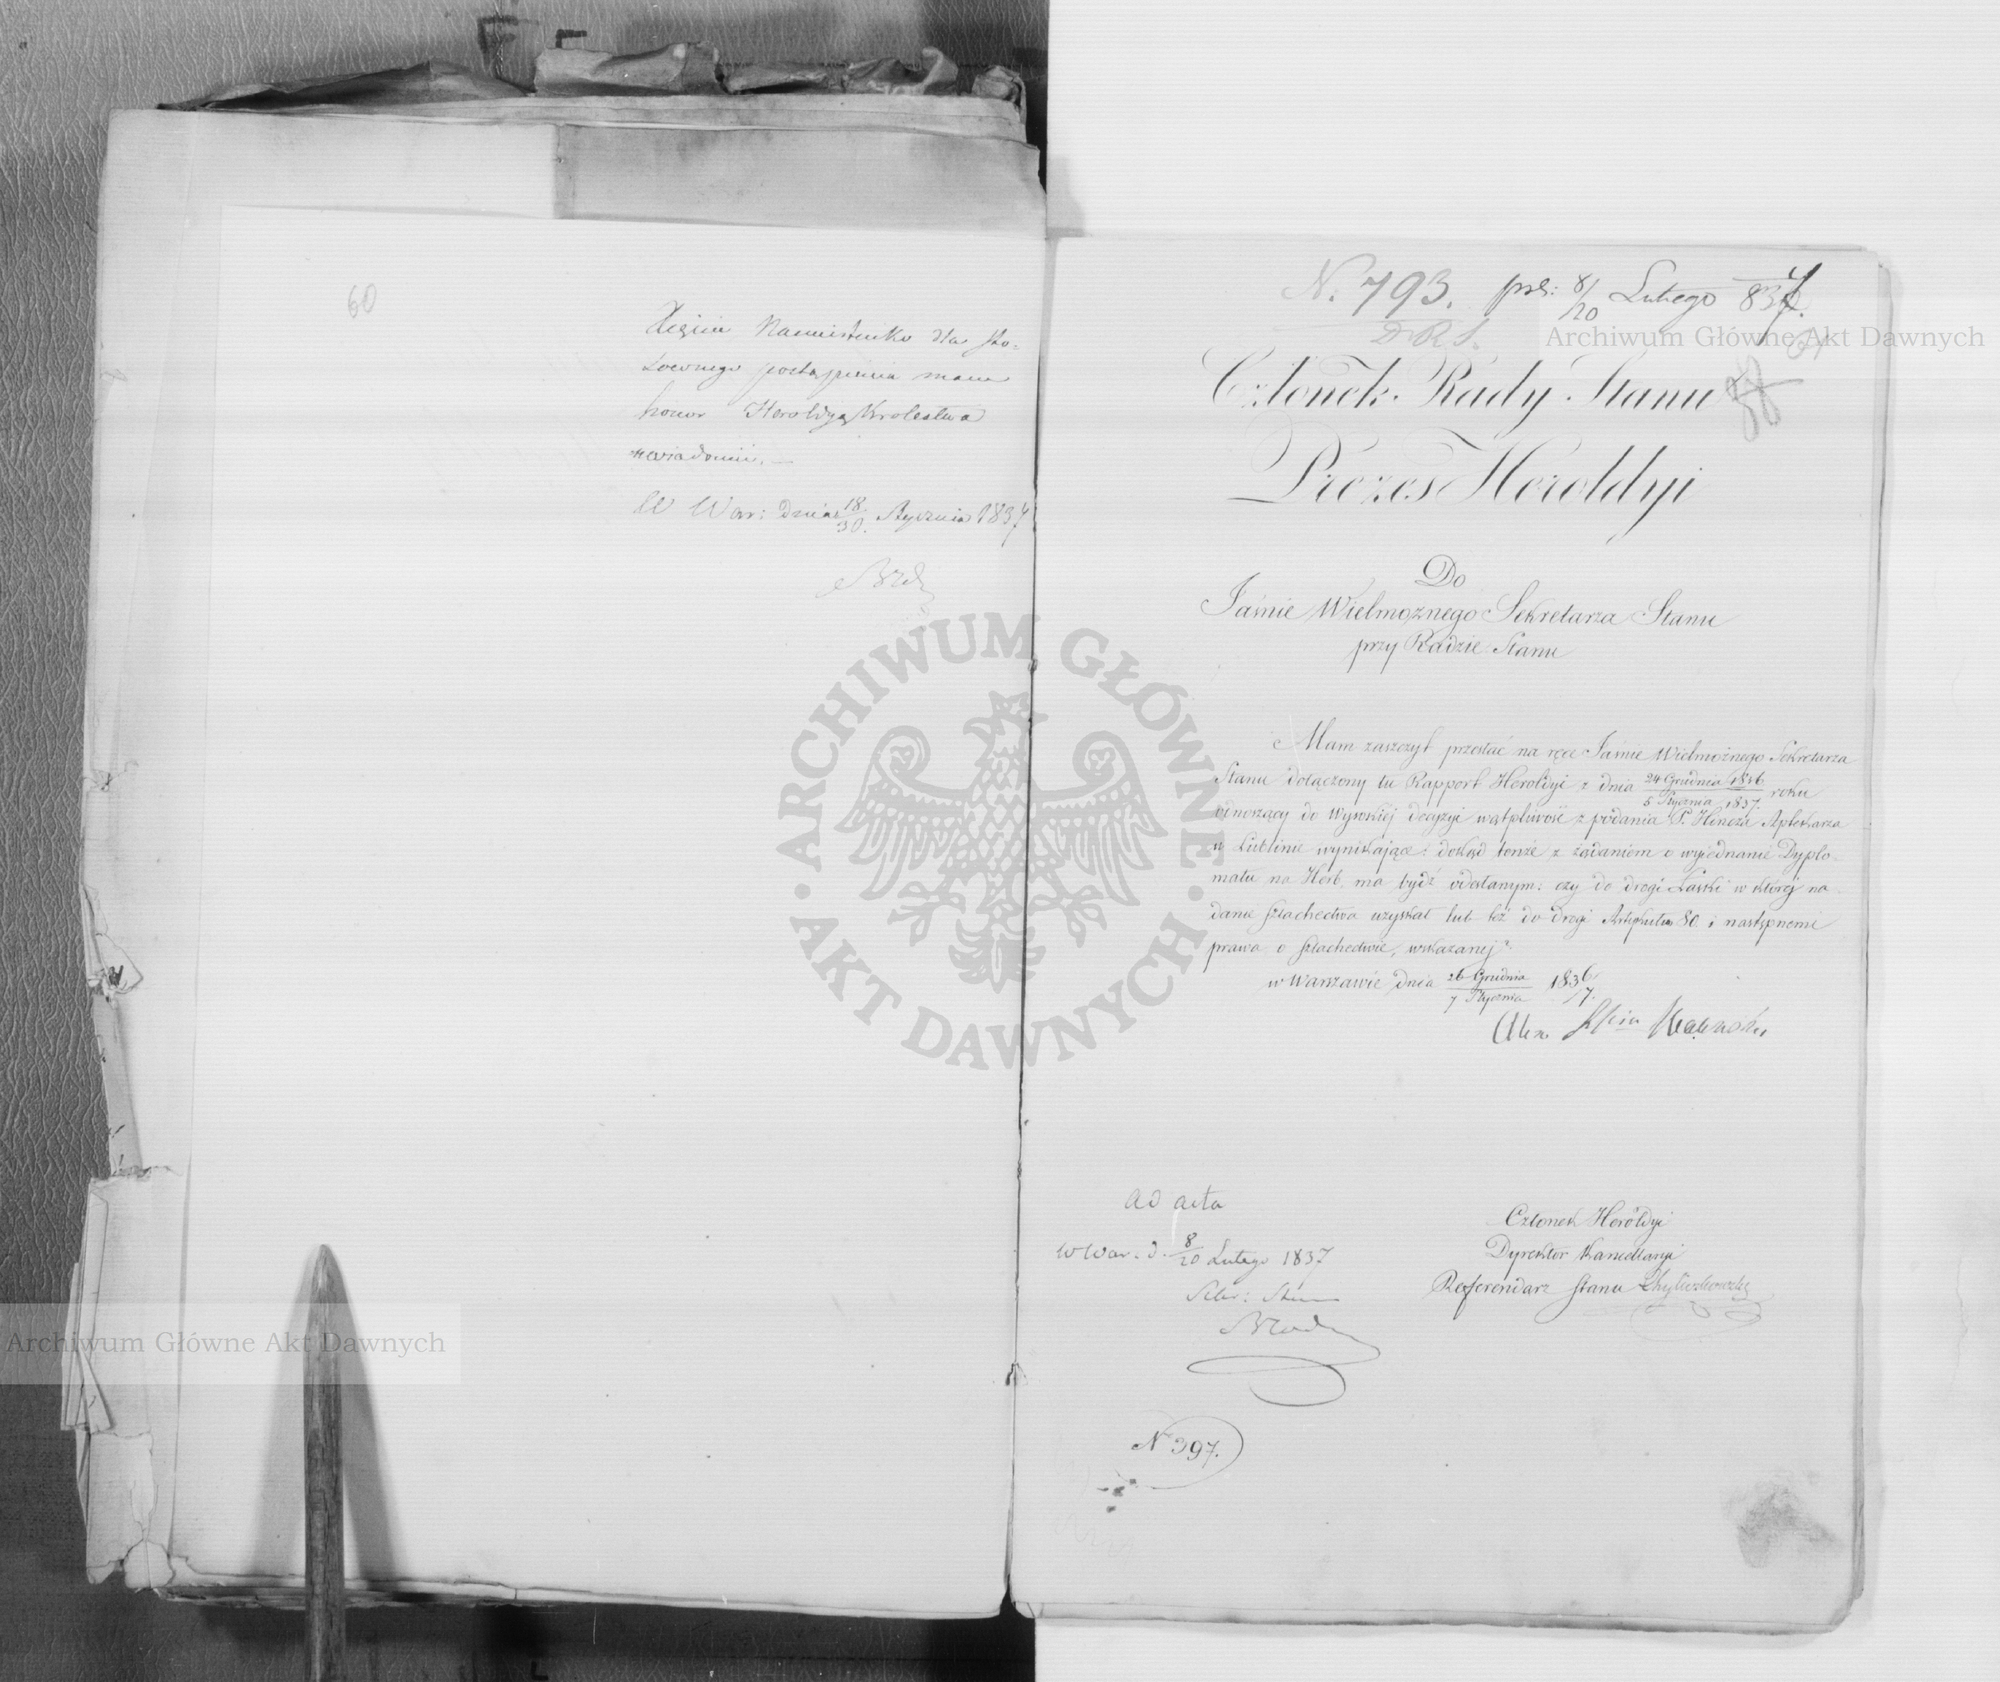 60
Xięcia Namiestnika dla sto-
sownego postąpienia mam
honor Heroldyą Królestwa
uwiadomić.—
W War: dnia 18/30. Stycznia 1837
N. 793. 8/20 Lutego 837.
D.R.S.
Członek Rady Stanu
Prezes Heroldyi
Do
Jaśnie Wielmożnego Sekretarza Stanu
przy Radzie Stanu
Mam zaszczyt przesłać na ręce Jaśnie Wielmożnego Sekretarza
Stanu dołączony tu Rapport Heroldyi z dnia 24 Grudnia 1836/5 Stycznia 1837. roku
odnoszący do Wysokiéj decyzyi wątpliwość z podania P. Hincza Aptekarza
w Lublinie wynikające: dokąd tenże z żądaniem o wyiednanie Dyplo-
matu na Herb, ma bydź odesłanym: czy do drogi Łaski w któréj na-
danie szlachectwa uzyskał lub też do drogi Artykułem 80. i następnemi
prawa o szlachectwie, wskazanéj?
w Warszawie dnia 26 Grudnia/7 Stycznia 1836/7.
Alex
Ad acta
W War. d. 8/20 Lutego 1837
Sekr: Stanu
Członek Heroldyi
Dyrektor Kancellaryi
Referendarz Stanu
N 397.
Archiwum Główne Akt Dawnych
Archiwum Główne Akt Dawnych
ARCHIWUM GŁÓWNE AKT DAWNYCH